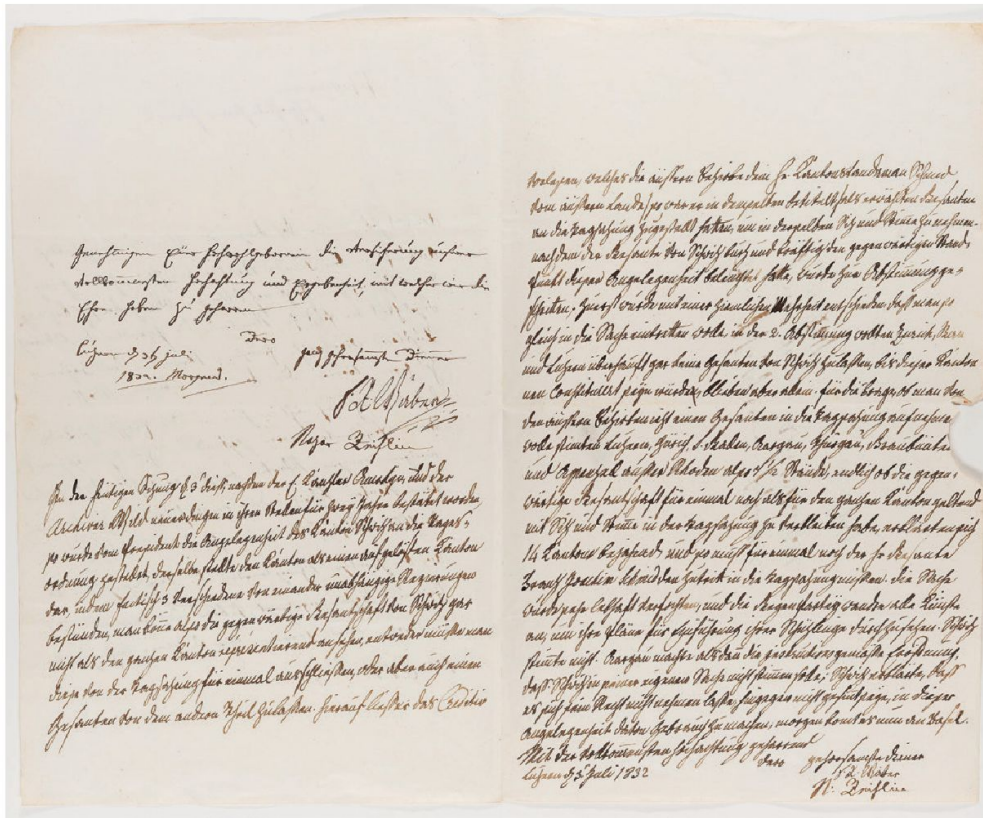 Genehmigen Euer Hochwohlgeboren die Versicherung unserer
vollkommensten Hochachtung und Ergebenheit, mit welcher wir die
Ehre haben zu geharren
Dero
Luzern d. July gehorsamste Diener
1832. Morgens.
Nazar
In der heutigen Sitzung d. 3 dies, nachdem der H. Kanzler und der
Archivar Wild neuerdings in ihren Stellen für zwey Jahre bestätet worden
so wurde vom President die Angelegenheit des Kanton Schwitz an die Tages-
ordnung gestellt, derselbe stellte den Kanton als einen aufgelösten Kanton
dar, indem factisch 3 verschiedene von einander unabhängige Regierungen
bestünden, man könne also die gegenwärtige Gesandtschaft von Schwitz gar
nicht als den ganzen Kanton representierend ansehen, entweder müsse man
diese von der Tagsatzung für einmal ausschliessen, oder aber auch einen
Gesanten von dem andern Theil zulassen. hierauf liess er das Creditiv
verlesen, welches die äussern Bezirke dem Hr Kantonslandamman Schmid
vom äussern Lande, so war er in demselben betitelt, als erwählten Gesanten
an die Tagsatzung zugestellt hatten, um in derselben Sitz und Stimme zu nehmen.
nachdem der Gesante von Schwitz kurz und kräftig den gegenwärtigen Stand-
punkt dieser Angelegenheit beleuchtet hatte, wurde zur Abstimmung ge-
schritten. Zuerst wurde mit einer ziemlichen Mehrheit entschieden, dass man so
gleich in die Sache eintretten wolle, in der 2. Abstimmung wollten Zürich,
und Luzern überhaupt gar keine Gesanten von Schwitz zulassen, bis dieser Kanton
neu Constituirt seyn würde, blieben aber allein, für die Frage, ob man von
den äussern Bezirken nicht einen Gesanten in die Tagsatzung aufnehmen
wolle stimten Luzern, Zürich, St. Gallen, Aargau, Thurgau, Graubünten
und Appenzell ausser Rhoden also 6 1/2 Stände, endlich ob die gegen-
wärtige Gesantschaft für einmal noch als für den ganzen Kanton geltend
mit Sitz und Stimme in der Tagsatzung zu verbleiben habe, erklärten sich
14 Kantone bejahend, und so mit für einmal noch der Hr Gesante
Schmid den Zutritt in die Tagsatzung. Die Sache
wurde sehr lebhaft verfochten, und die Gegenparthey wandte alle Künste
an, um ihre Pläne für Einführung ihrer Schützlinge durchzusetzen. Schwitz
stimte mit. Aargau machte alsdan die Eröffnung,
dass Schwitz in seiner eigenen Sache nicht stimmen solle, Schwitz erklärte, dass
es sich sein Recht nicht nehmen lasse, hingegen nicht, in dieser
Angelegenheit davon Gebrauch zu machen. morgen komt es nun an Basel.
Mit der vollkommensten Hochachtung geharren
Dero gehorsamste Diener
Luzern d. 3 Juli 1832
N.